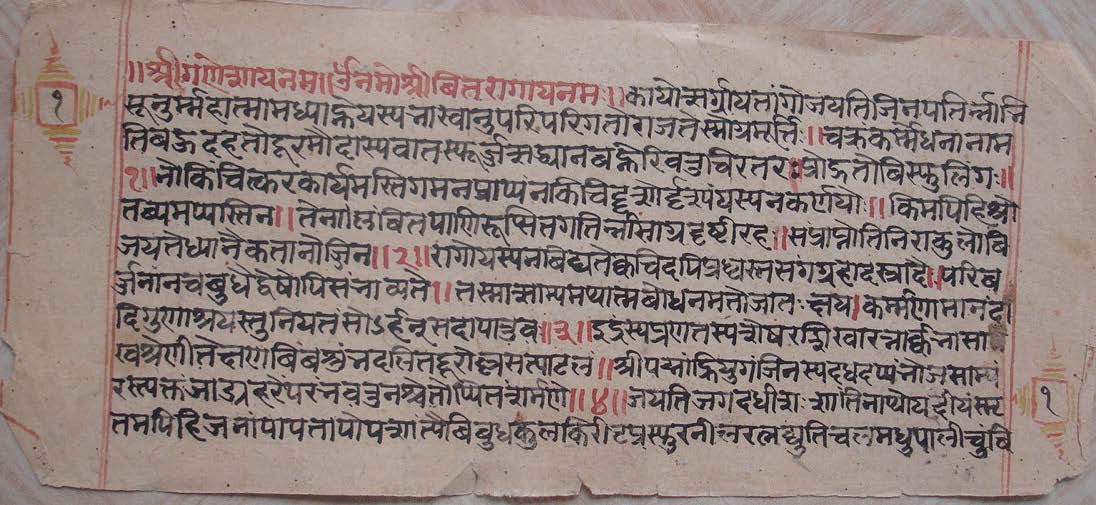 १
॥श्रीगणेशायनमः॥ ॐनमोश्रीबितरागायनमः॥ कायोत्सर्गायतांगोजयतिजिनपतिर्न्नाभि
सूनुर्म्महात्मामध्याह्नेयस्यभास्वानुपरिपरिगतोराजतेस्मोग्रमूर्त्तिः॥ चक्रंकर्म्मेंधनानाम
तिबऊदहतोदूरमौदास्यवातस्फूर्ज्जत्सद्ध्यानबह्नेरिवरुचिरतरःप्रोद्गतोबिस्फुलिंगः॥
१॥ नोकिंचित्करकार्यमस्तिगमनप्राप्यंनकिंचिद्दृशोर्दृश्यंयस्यनकर्णयोः॥ किमपिहिश्रो
तव्यमप्यस्तिन॥ तेनालंबितपाणिरुझितगतिर्न्नासाग्रदृष्टीरहः॥ संप्राप्तोतिनिराकुलोबि
जयतेध्यानैकतानोजिनः॥ २॥ रागोयस्यनबिद्यतेक्कचिदपिप्रध्वस्तसंगग्रहादस्त्रादेः॥ परिब
र्ज्जनान्नचबुधैर्द्वेषोपिसंभाव्यते॥ तस्मात्साम्यमथात्मबोधनमतोजातःक्षयः। कर्म्मणामानंदा
दिगुणाश्रयस्तुनियतंसोऽर्हन्सदापातुवः॥ ३॥ इंद्रस्यप्रणतस्यशेषरशिखारत्नार्क्कभासा
खश्रेणीतेक्षणबिंबशुंभदलितद्दूरोल्लसत्पाटलं॥ श्रीपद्मांह्रियुगंजिनस्यदधदप्यंभोजसाम्यं
रजस्त्यक्तंजाड्यहरंपरंभवतुनश्चेतोर्पितंशर्मणे॥ ४॥ जयतिजगदधीशःशांतिनाथोयदीयंस्मृ
तमपिहिजनानांपापतापोपशांत्यैबिबुधकुलकिरीटप्रस्फुरन्नीलरत्नद्युतिचलमधुपालीचुंबि
१